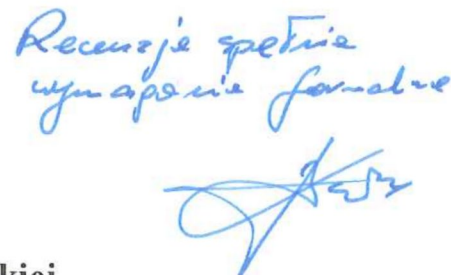 Recenzja spełnia
wymagania formalne
kiej